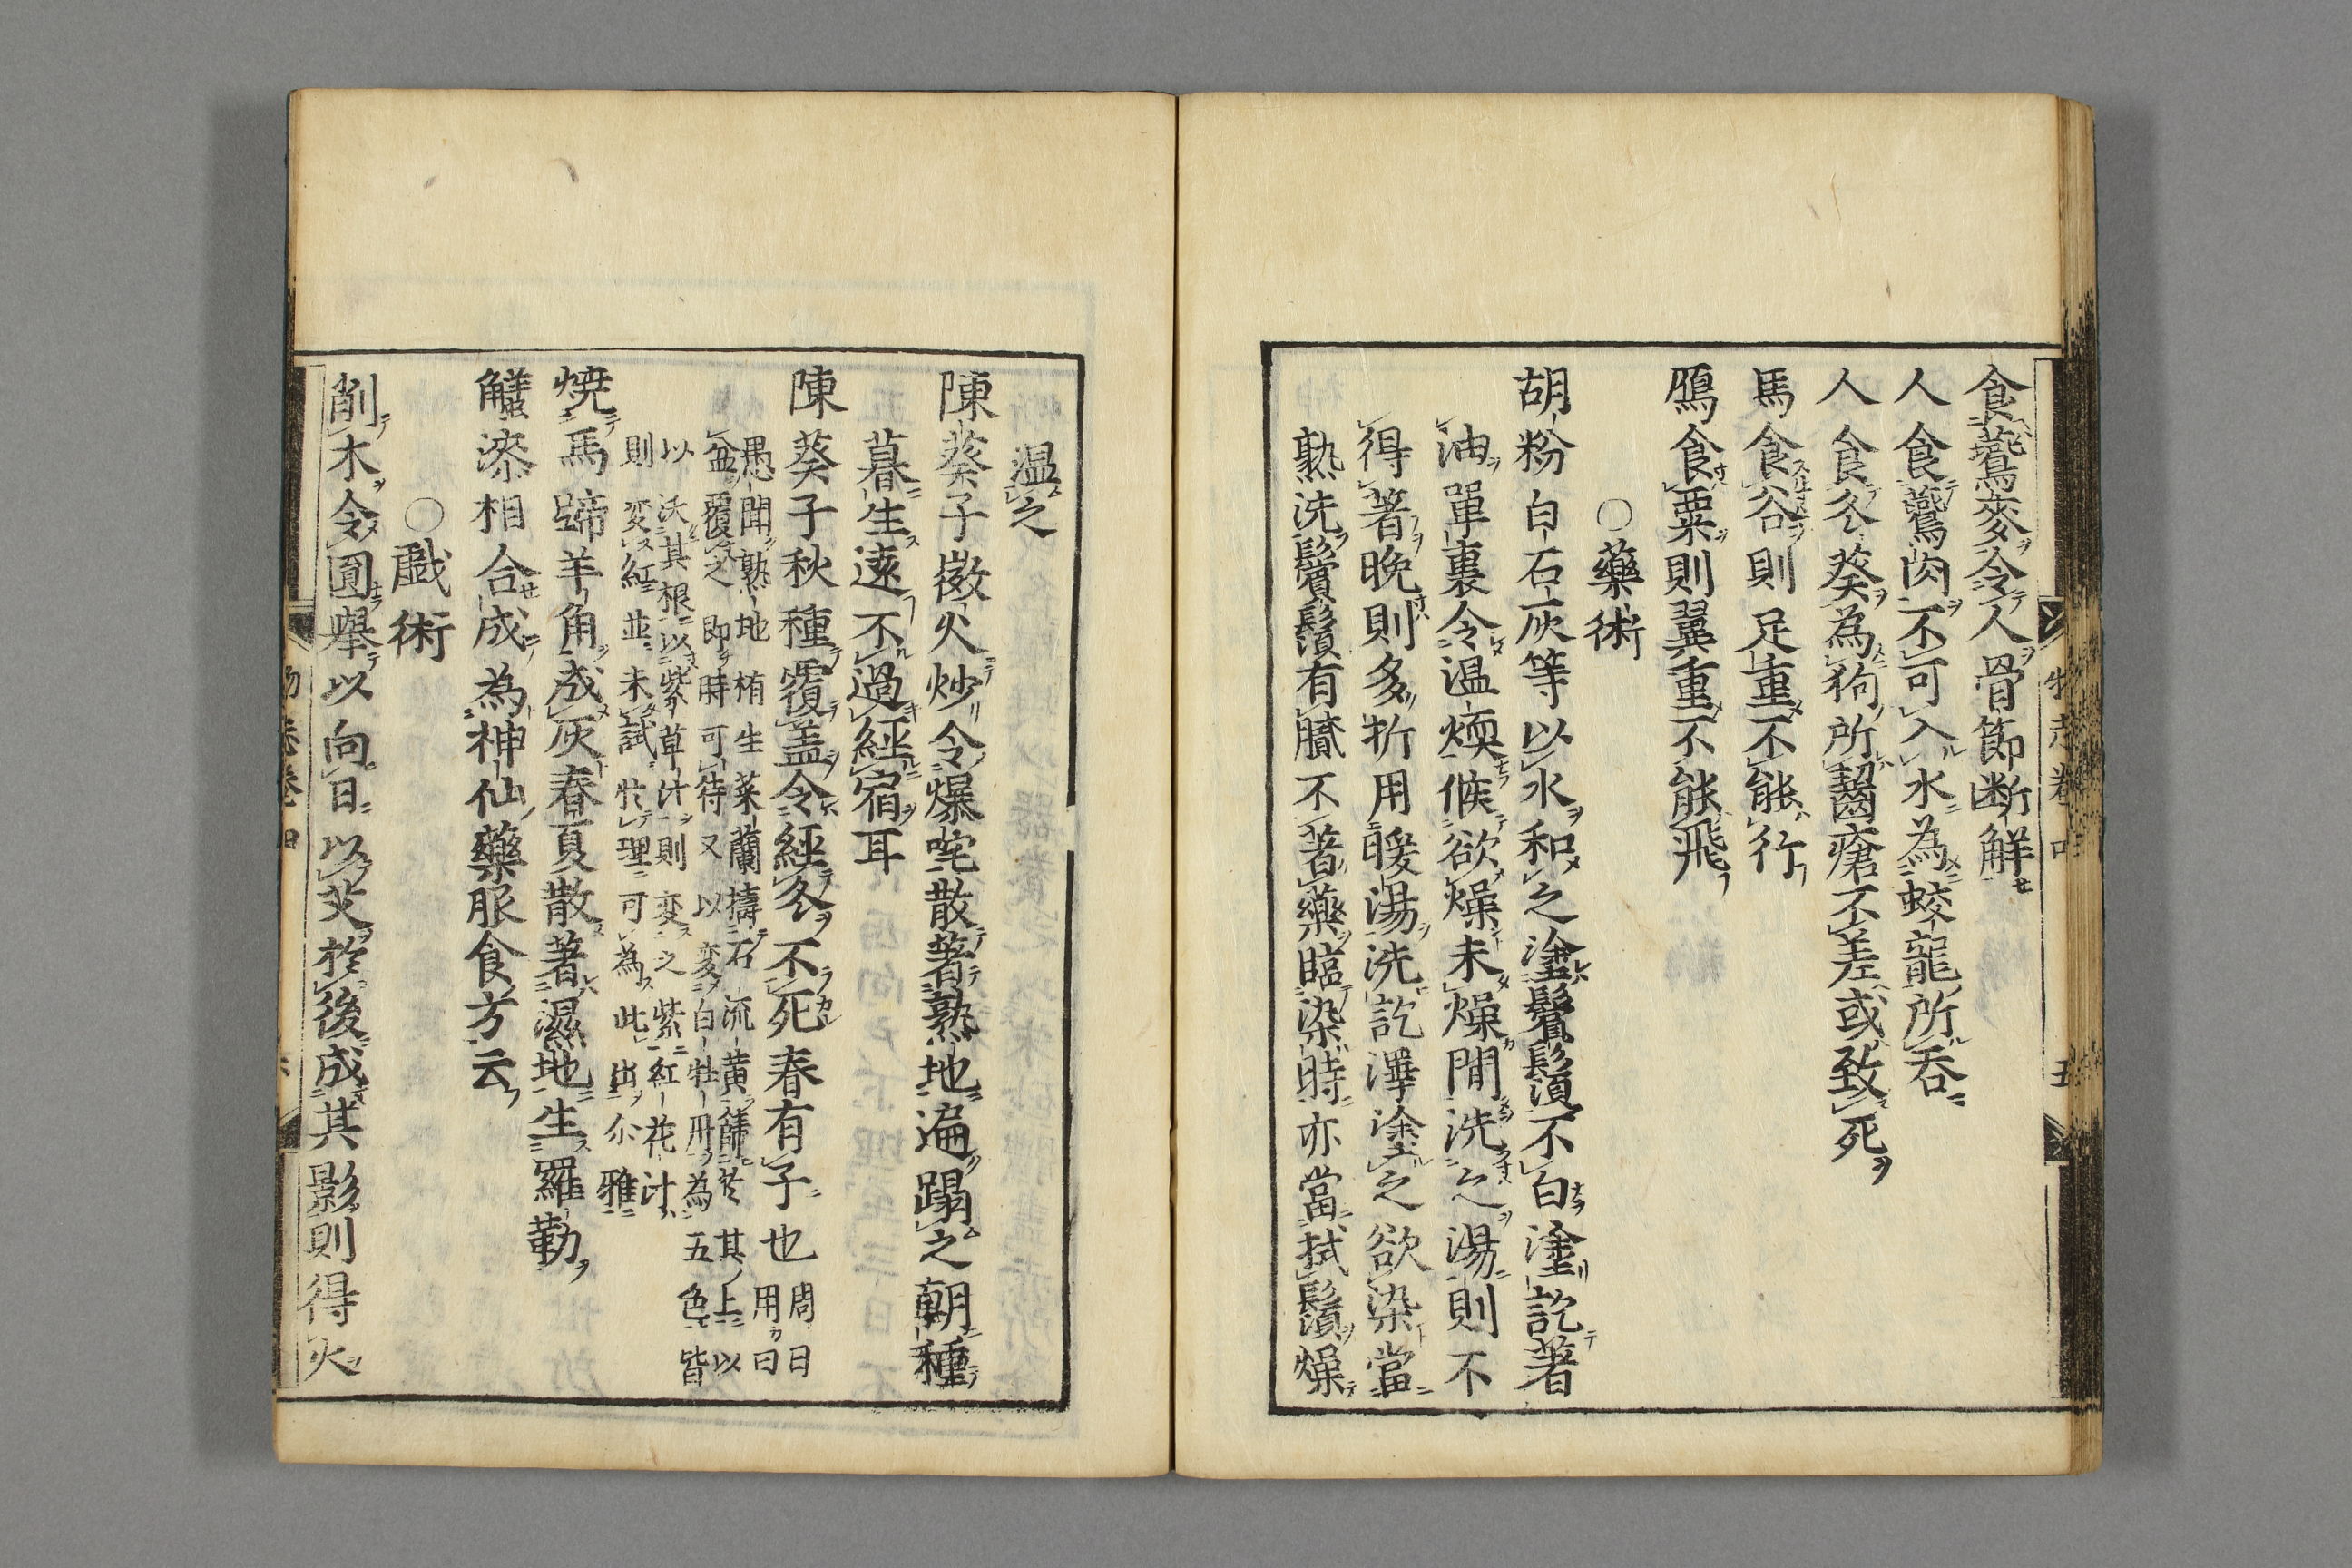 食鷰麥令人骨節断解
人食鷰肉不可入水為蛟龍所呑
人食冬葵為狗所齧瘡不差或致死
馬食谷則足重不能行
鴈食粟則翼重不能飛
○藥術
胡粉白石灰等以水和之塗鬢鬚不白塗訖著
油單裏令温煗候欲燥未燥間洗之湯則不
得著晩則多折用暖湯洗訖澤塗之欲染當
熟洗鬢鬚有膩不著藥臨染時亦當拭鬚燥
温之
陳葵子微火炒令爆咤散著熟地遍蹋之朝種
暮生遠不過経宿耳
陳葵子秋種覆盖令経冬不死春有子也
周日
用曰
愚聞熟地植生菜蘭擣石流黄篩於其上以
盆覆之即時可待又以変白牡丹為五色皆
以沃其根以紫草汁則変之紫紅花汁
則変紅並未試於理可為此出尒雅
焼馬蹄羊角成灰春夏散著濕地生羅勒
鱔漆相合成為神仙藥服食方云
○戯術
削木令圓舉以向日以艾於後成其影則得火